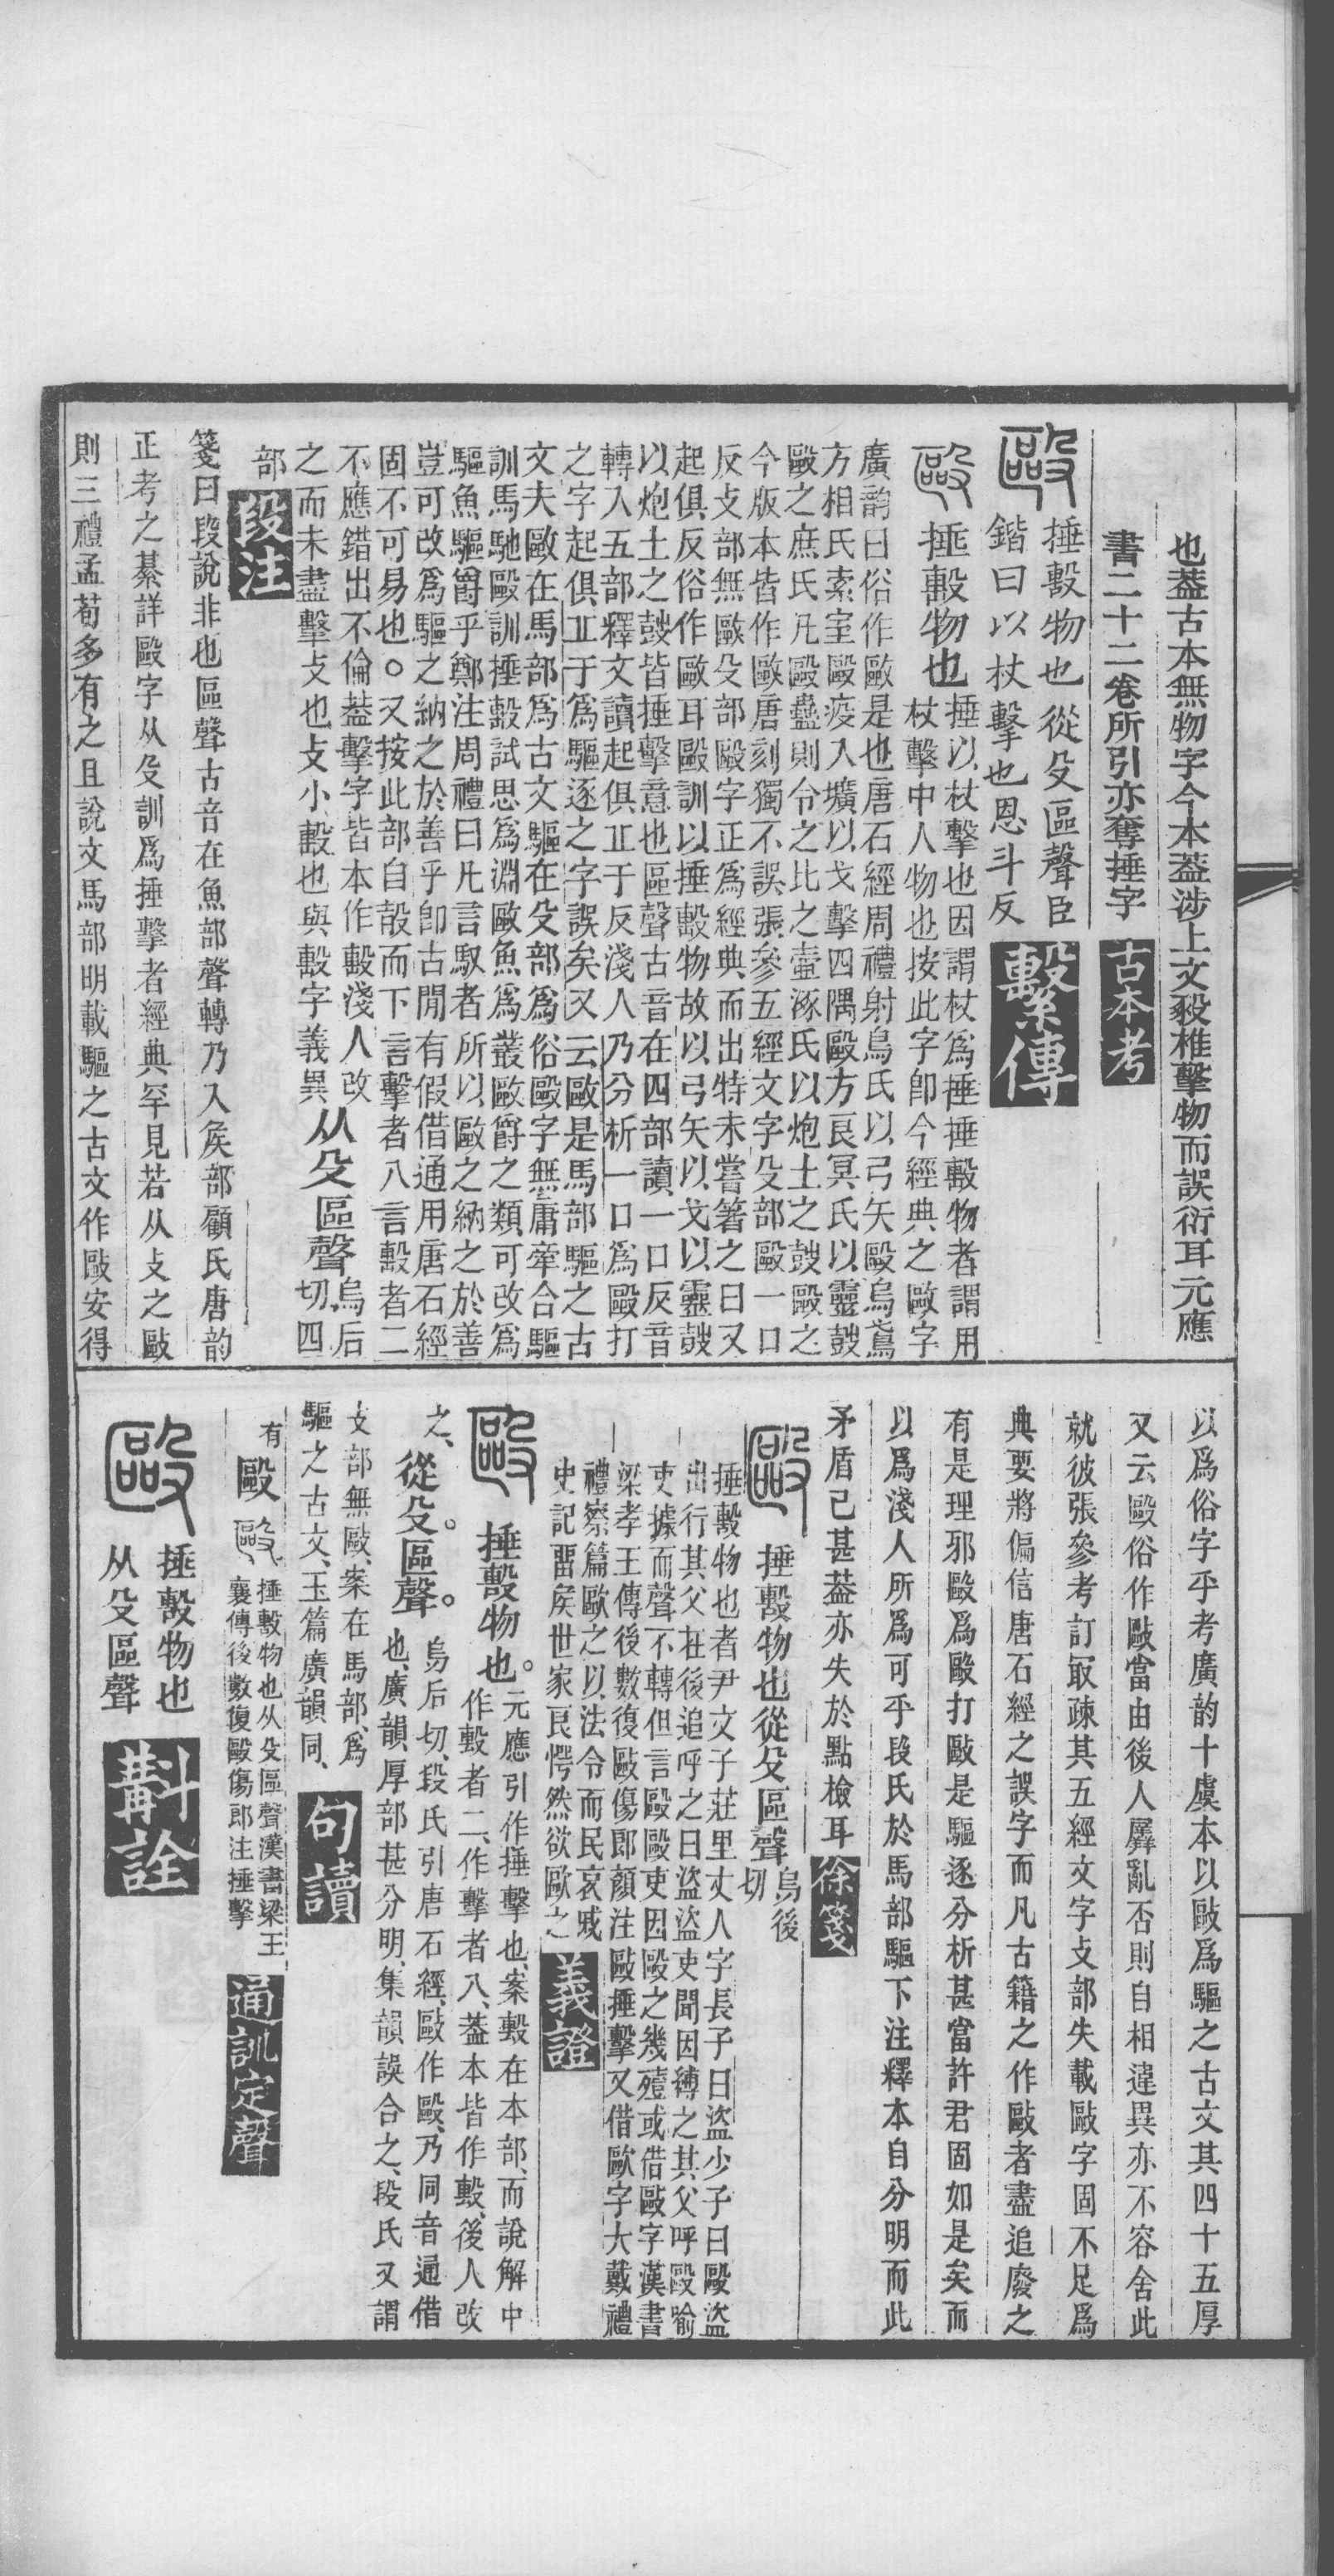 也葢古本無物字今本葢涉上文殺椎擊物而誤衍耳元應
書二十二卷所引亦奪捶字 古本考
毆 捶毄物也從殳區聲臣
鍇曰以杖擊也恩斗反 繫傳
毆 捶毄物也 捶以杖擊也因謂杖爲捶捶毄物者謂用
杖擊中人物也按此字卽今經典之敺字
廣韵曰俗作敺是也唐石經周禮射鳥氏以弓矢毆烏鳶
方相氏索室毆疫入壙以戈擊四隅毆方良冥氏以靈鼓
敺之庶氏凡毆蠱則令之比之壷涿氏以炮土之鼓毆之
今版本皆作敺唐刻獨不誤張參五經文字殳部毆一口
反攴部無敺殳部毆字正爲經典而出特未嘗箸之曰又
起俱反俗作敺耳毆訓以捶毄物故以弓矢以戈以靈鼓
以炮土之鼓皆捶擊意也區聲古音在四部讀一口反音
轉入五部釋文讀起俱㠪于反淺人乃分析一口爲毆打
之字起俱㠪于爲驅逐之字誤矣又云敺是馬部驅之古
文夫敺在馬部爲古文驅在殳部爲俗毆字無庸牽合驅
訓馬馳毆訓捶毄試思爲淵敺魚爲叢敺爵之類可改爲
驅魚驅爵乎鄭注周禮曰凡言馭者所以敺之納之於善
豈可改爲驅之納之於善乎卽古閒有假借通用唐石經
固不可易也○又按此部自㱿而下言擊者八言毄者二
不應錯出不倫葢擊字皆本作毄淺人改
之而未盡擊攴也攴小毄也與毄字義異 从殳區聲 烏后
切四
部 段注
箋曰段說非也區聲古音在魚部聲轉乃入矦部顧氏唐韵
正考之綦詳毆字从殳訓爲捶擊者經典罕見若从攴之敺
則三禮孟荀多有之且說文馬部明載驅之古文作敺安得
以爲俗字乎考廣韵十虞本以敺爲驅之古文其四十五厚
又云毆俗作敺當由後人羼亂否則自相違異亦不容舍此
就彼張參考訂㝡疎其五經文字攴部失載敺字固不足爲
典要將偏信唐石經之誤字而凡古籍之作敺者盡追廢之
有是理邪毆爲毆打敺是驅逐分析甚當許君固如是矣而
以爲淺人所爲可乎段氏於馬部驅下注釋本自分明而此
矛盾已甚葢亦失於點檢耳 徐箋
毆 捶毄物也從殳區聲 烏後
切
捶毄物也者尹文子莊里丈人字長子曰盜少子曰毆盜
出行其父在後追呼之曰盜盜吏聞因縛之其父呼毆喻
吏據而聲不轉但言毆毆吏因毆之幾殪或借敺字漢書
梁孝王傳後數復敺傷郎顏注敺捶擊又借歐字大戴禮
禮察篇歐之以法令而民哀戚
史記畱矦世家良愕然欲歐之 義證
毆 捶毄物也。 元應引作捶擊也、案毄在本部、而說解中
作毄者二、作擊者八、葢本皆作毄、後人改
之、 從殳。區聲。 烏后切、段氏引唐石經、敺作毆、乃同音通借
也、廣韻、厚部甚分明、集韻誤合之、段氏又謂
攴部無敺、案在馬部、爲
驅之古文、玉篇廣韻同、 句讀
有 毆 毆 捶毄物也从殳區聲漢書梁王
襄傳後數復毆傷郎注捶擊 通訓定聲
毆 捶毄物也
从殳區聲 斠詮